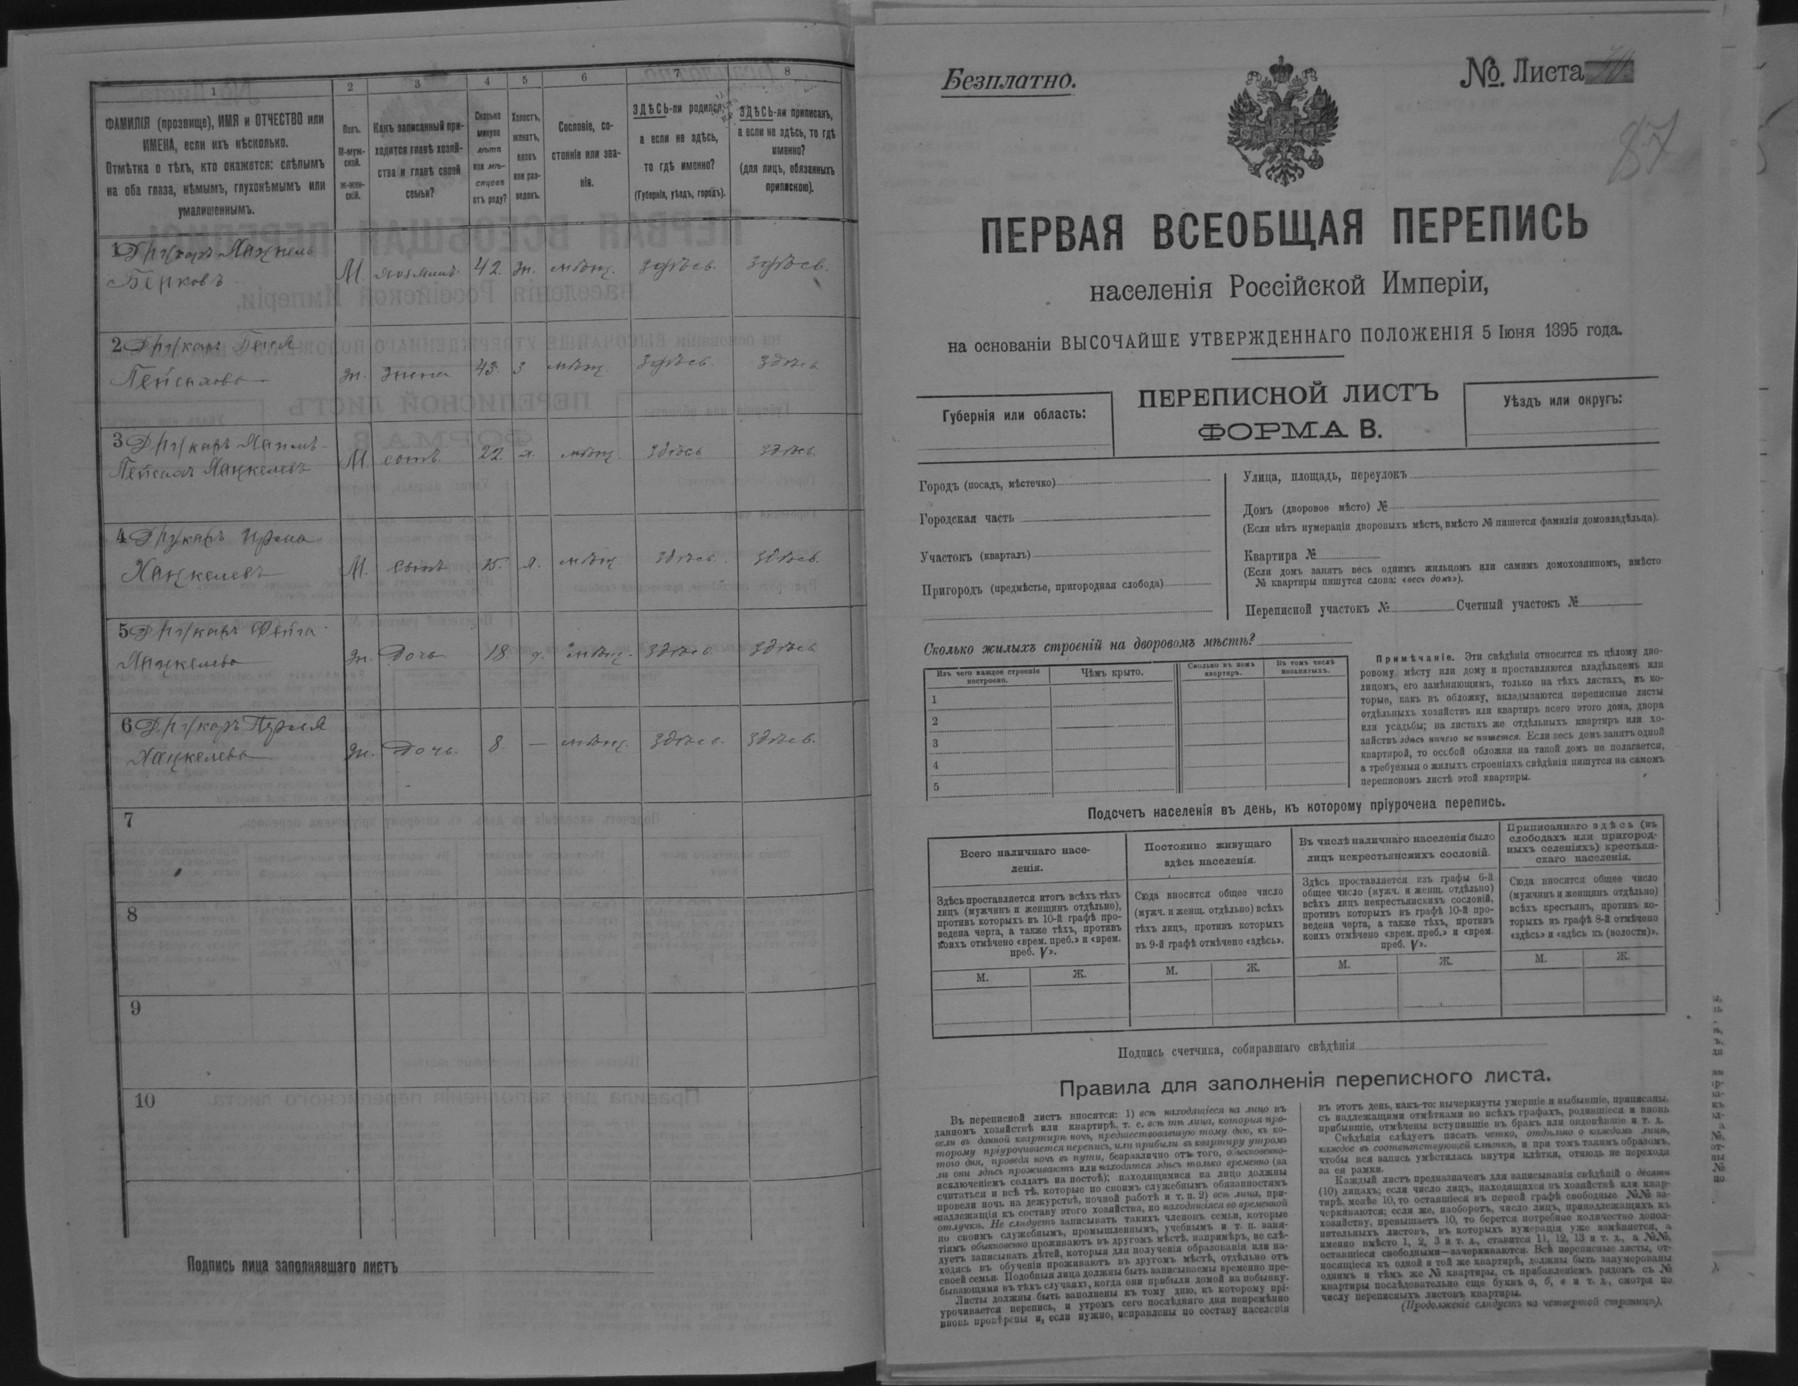 1
2
3
4
5
6
7
8
ФАМИЛІЯ (прозвище), ИМЯ и ОТЧЕСТВО или
ИМЕНА, если ихъ нѣсколько.
Отмѣтка о тѣхъ, кто окажется: слѣпымъ
на оба глаза, нѣмымъ, глухонѣмымъ или
умалишеннымъ.
Полъ.
М-муж-
ской.
Ж-жен-
скій.
Какъ записанный при-
ходится главѣ хозяй-
ства и главѣ своей
семьи?
Сколько
минуло
лѣтъ
или мѣ-
сяцевъ
отъ роду?
Холостъ,
женатъ,
вдовъ
или раз-
веденъ.
Сословіе, со-
стояніе или зва-
ніе.
ЗДѢСЬ-ли родился,
а если не здѣсь,
то гдѣ именно?
(Губернія, уѣздъ, городъ).
ЗДѢСЬ-ли приписанъ,
а если не здѣсь, то гдѣ
именно?
(для лицъ, обязанныхъ
припискою).
1 Друкарь
Берковъ
М. 42. жн. мѣщ. здѣсь. здѣсь.
2 Друкарь
Пейсахова
жн. жена 43. з мѣщ здѣсь. здѣсь
3 Друкарь
Пейсахъ Янкелевъ
М. сынъ. 22. х. мѣщ здѣсь здѣсь.
4 Друкарь
М. сынъ 15. х. мѣщ здѣсь. здѣсь.
5 Друкарь Фейга
Янкелева
жн. Дочь 18 мѣщ. здѣсь здѣсь
6 Друкарь Перля
Янкелева
жн. Дочь. 8. — мѣщ. здѣсь. здѣсь.
7
8
9
10
Подпись лица заполнявшаго листъ
Безплатно.
№. Листа
87
ПЕРВАЯ ВСЕОБЩАЯ ПЕРЕПИСЬ
населенія Россійской Имперіи,
на основаніи ВЫСОЧАЙШЕ УТВЕРЖДЕННАГО ПОЛОЖЕНІЯ 5 Іюня 1895 года.
Губернія или область:
ПЕРЕПИСНОЙ ЛИСТЪ
ФОРМА В.
Уѣздъ или округъ:
Городъ (посадъ, мѣстечко)
Городская часть
Участокъ (кварталъ)
Пригородъ (предмѣстье, пригородная слобода)
Улица, площадь, переулокъ
Домъ (дворовое мѣсто) №
(Если нѣтъ нумераціи дворовыхъ мѣстъ, вмѣсто № пишется фамилія домовладѣльца).
Квартира №
(Если домъ занятъ весь однимъ жильцомъ или самимъ домохозяиномъ, вмѣсто
№ квартиры пишутся слова: «весь домъ»).
Переписной участокъ № Счетный участокъ №
Сколько жилыхъ строеній на дворовомъ мѣстѣ?
Изъ чего каждое строеніе
построено.
Чѣмъ крыто.
Сколько въ немъ
квартиръ.
Въ томъ числѣ
незанятыхъ.
1
2
3
4
5
Примѣчаніе. Эти свѣдѣнія относятся къ цѣлому дво-
ровому мѣсту или дому и проставляются владѣльцемъ или
лицомъ, его замѣняющимъ, только на тѣхъ листахъ, въ ко-
торые, какъ въ обложку, вкладываются переписные листы
отдѣльныхъ хозяйствъ или квартиръ всего этого дома, двора
или усадьбы; на листахъ же отдѣльныхъ квартиръ или хо-
зяйствъ здѣсь ничего не пишется. Если весь домъ занятъ одной
квартирой, то особой обложки на такой домъ не полагается,
а требуемыя о жилыхъ строеніяхъ свѣдѣнія пишутся на самомъ
переписномъ листѣ этой квартиры.
Подсчетъ населенія въ день, къ которому пріурочена перепись.
Всего наличнаго насе-
ленія.
Здѣсь проставляется итогъ всѣхъ тѣхъ
лицъ (мужчинъ и женщинъ отдѣльно),
противъ которыхъ въ 10-й графѣ про-
ведена черта, а также тѣхъ, противъ
коихъ отмѣчено «врем. преб.» и «врем.
преб. V».
Постоянно живущаго
здѣсь населенія.
Сюда вносится общее число
(мужч. и женщ. отдѣльно) всѣхъ
тѣхъ лицъ, противъ которыхъ
въ 9-й графѣ отмѣчено «здѣсь».
Въ числѣ наличнаго населенія было
лицъ некрестьянскихъ сословій.
Здѣсь проставляется изъ графы 6-й
общее число (мужч. и женщ. отдѣльно)
всѣхъ лицъ некрестьянскихъ сословій,
противъ которыхъ въ графѣ 10-й про-
ведена черта, а также тѣхъ, противъ
коихъ отмѣчено «врем. преб.» и «врем.
преб. V».
Приписаннаго здѣсь (въ
слободахъ или пригород-
ныхъ селеніяхъ) крестьян-
скаго населенія.
Сюда вносится общее число
(мужчинъ и женщинъ отдѣльно)
всѣхъ крестьянъ, противъ ко-
торыхъ въ графѣ 8-й отмѣчено
«здѣсь» и «здѣсь къ (волости)».
М. Ж. М. Ж. М. Ж. М. Ж.
Подпись счетчика, собиравшаго свѣдѣнія
Правила для заполненія переписного листа.
Въ переписной листъ вносятся: 1) всѣ находящіеся на лицо въ
данномъ хозяйствѣ или квартирѣ, т. е. всѣ тѣ лица, которыя про-
вели въ данной квартирѣ ночь, предшествовавшую тому дню, къ ко-
торому пріурочивается перепись, или прибыли въ квартиру утромъ
того дня, проведя ночь въ пути, безразлично отъ того, обыкновенно-
ли они здѣсь проживаютъ или находятся здѣсь только временно (за
исключеніемъ солдатъ на постоѣ); находящимися на лицо должны
считаться и всѣ тѣ, которые по своимъ служебнымъ обязанностямъ
провели ночь на дежурствѣ, ночной работѣ и т. п. 2) всѣ лица, при-
надлежащія къ составу этого хозяйства, но находящіяся во временной
отлучкѣ. Не слѣдуетъ записывать такихъ членовъ семьи, которые
по своимъ служебнымъ, промышленнымъ, учебнымъ и т. п. заня-
тіямъ обыкновенно проживаютъ въ другомъ мѣстѣ, напримѣръ, не слѣ-
дуетъ записывать дѣтей, которыя для полученія образованія или на-
ходясь въ обученіи проживаютъ въ другомъ мѣстѣ, отдѣльно отъ
своей семьи. Подобныя лица должны быть записываемы временно пре-
бывающими въ тѣхъ случаяхъ, когда они прибыли домой на побывку.
Листы должны быть заполнены къ тому дню, къ которому прі-
урочивается перепись, и утромъ сего послѣдняго дня непремѣнно
вновь провѣрены и, если нужно, исправлены по составу населенія
въ этотъ день, какъ-то: вычеркнуты умершіе и выбывшіе, приписаны,
съ надлежащими отмѣтками во всѣхъ графахъ, родившіеся и вновь
прибывшіе, отмѣчены вступившіе въ бракъ или овдовѣвшіе и т. д.
Свѣдѣнія слѣдуетъ писать четко, отдѣльно о каждомъ лицѣ,
каждое въ соотвѣтствующей клѣткѣ, и при томъ такимъ образомъ,
чтобы вся запись умѣстилась внутри клѣтки, отнюдь не переходя
за ея рамки.
Каждый листъ предназначенъ для записыванія свѣдѣній о десяти
(10) лицахъ; если число лицъ, находящихся въ хозяйствѣ или квар-
тирѣ, менѣе 10, то оставшіеся въ первой графѣ свободные №№ за-
черкиваются; если же, наоборотъ, число лицъ, принадлежащихъ къ
хозяйству, превышаетъ 10, то берется потребное количество допол-
нительныхъ листовъ, въ которыхъ нумерація уже измѣняется, а
именно вмѣсто 1, 2, 3 и т. д., ставится 11, 12, 13 и т. д., а №№,
оставшіеся свободными—зачеркиваются. Всѣ переписные листы, от-
носящіеся къ одной и той же квартирѣ, должны быть занумерованы
однимъ и тѣмъ же № квартиры, съ прибавленіемъ рядомъ съ №
квартиры послѣдовательно еще буквъ а, б, в и т. д., смотря по
числу переписныхъ листовъ квартиры.
(Продолженіе слѣдуетъ на четвертой страницѣ).